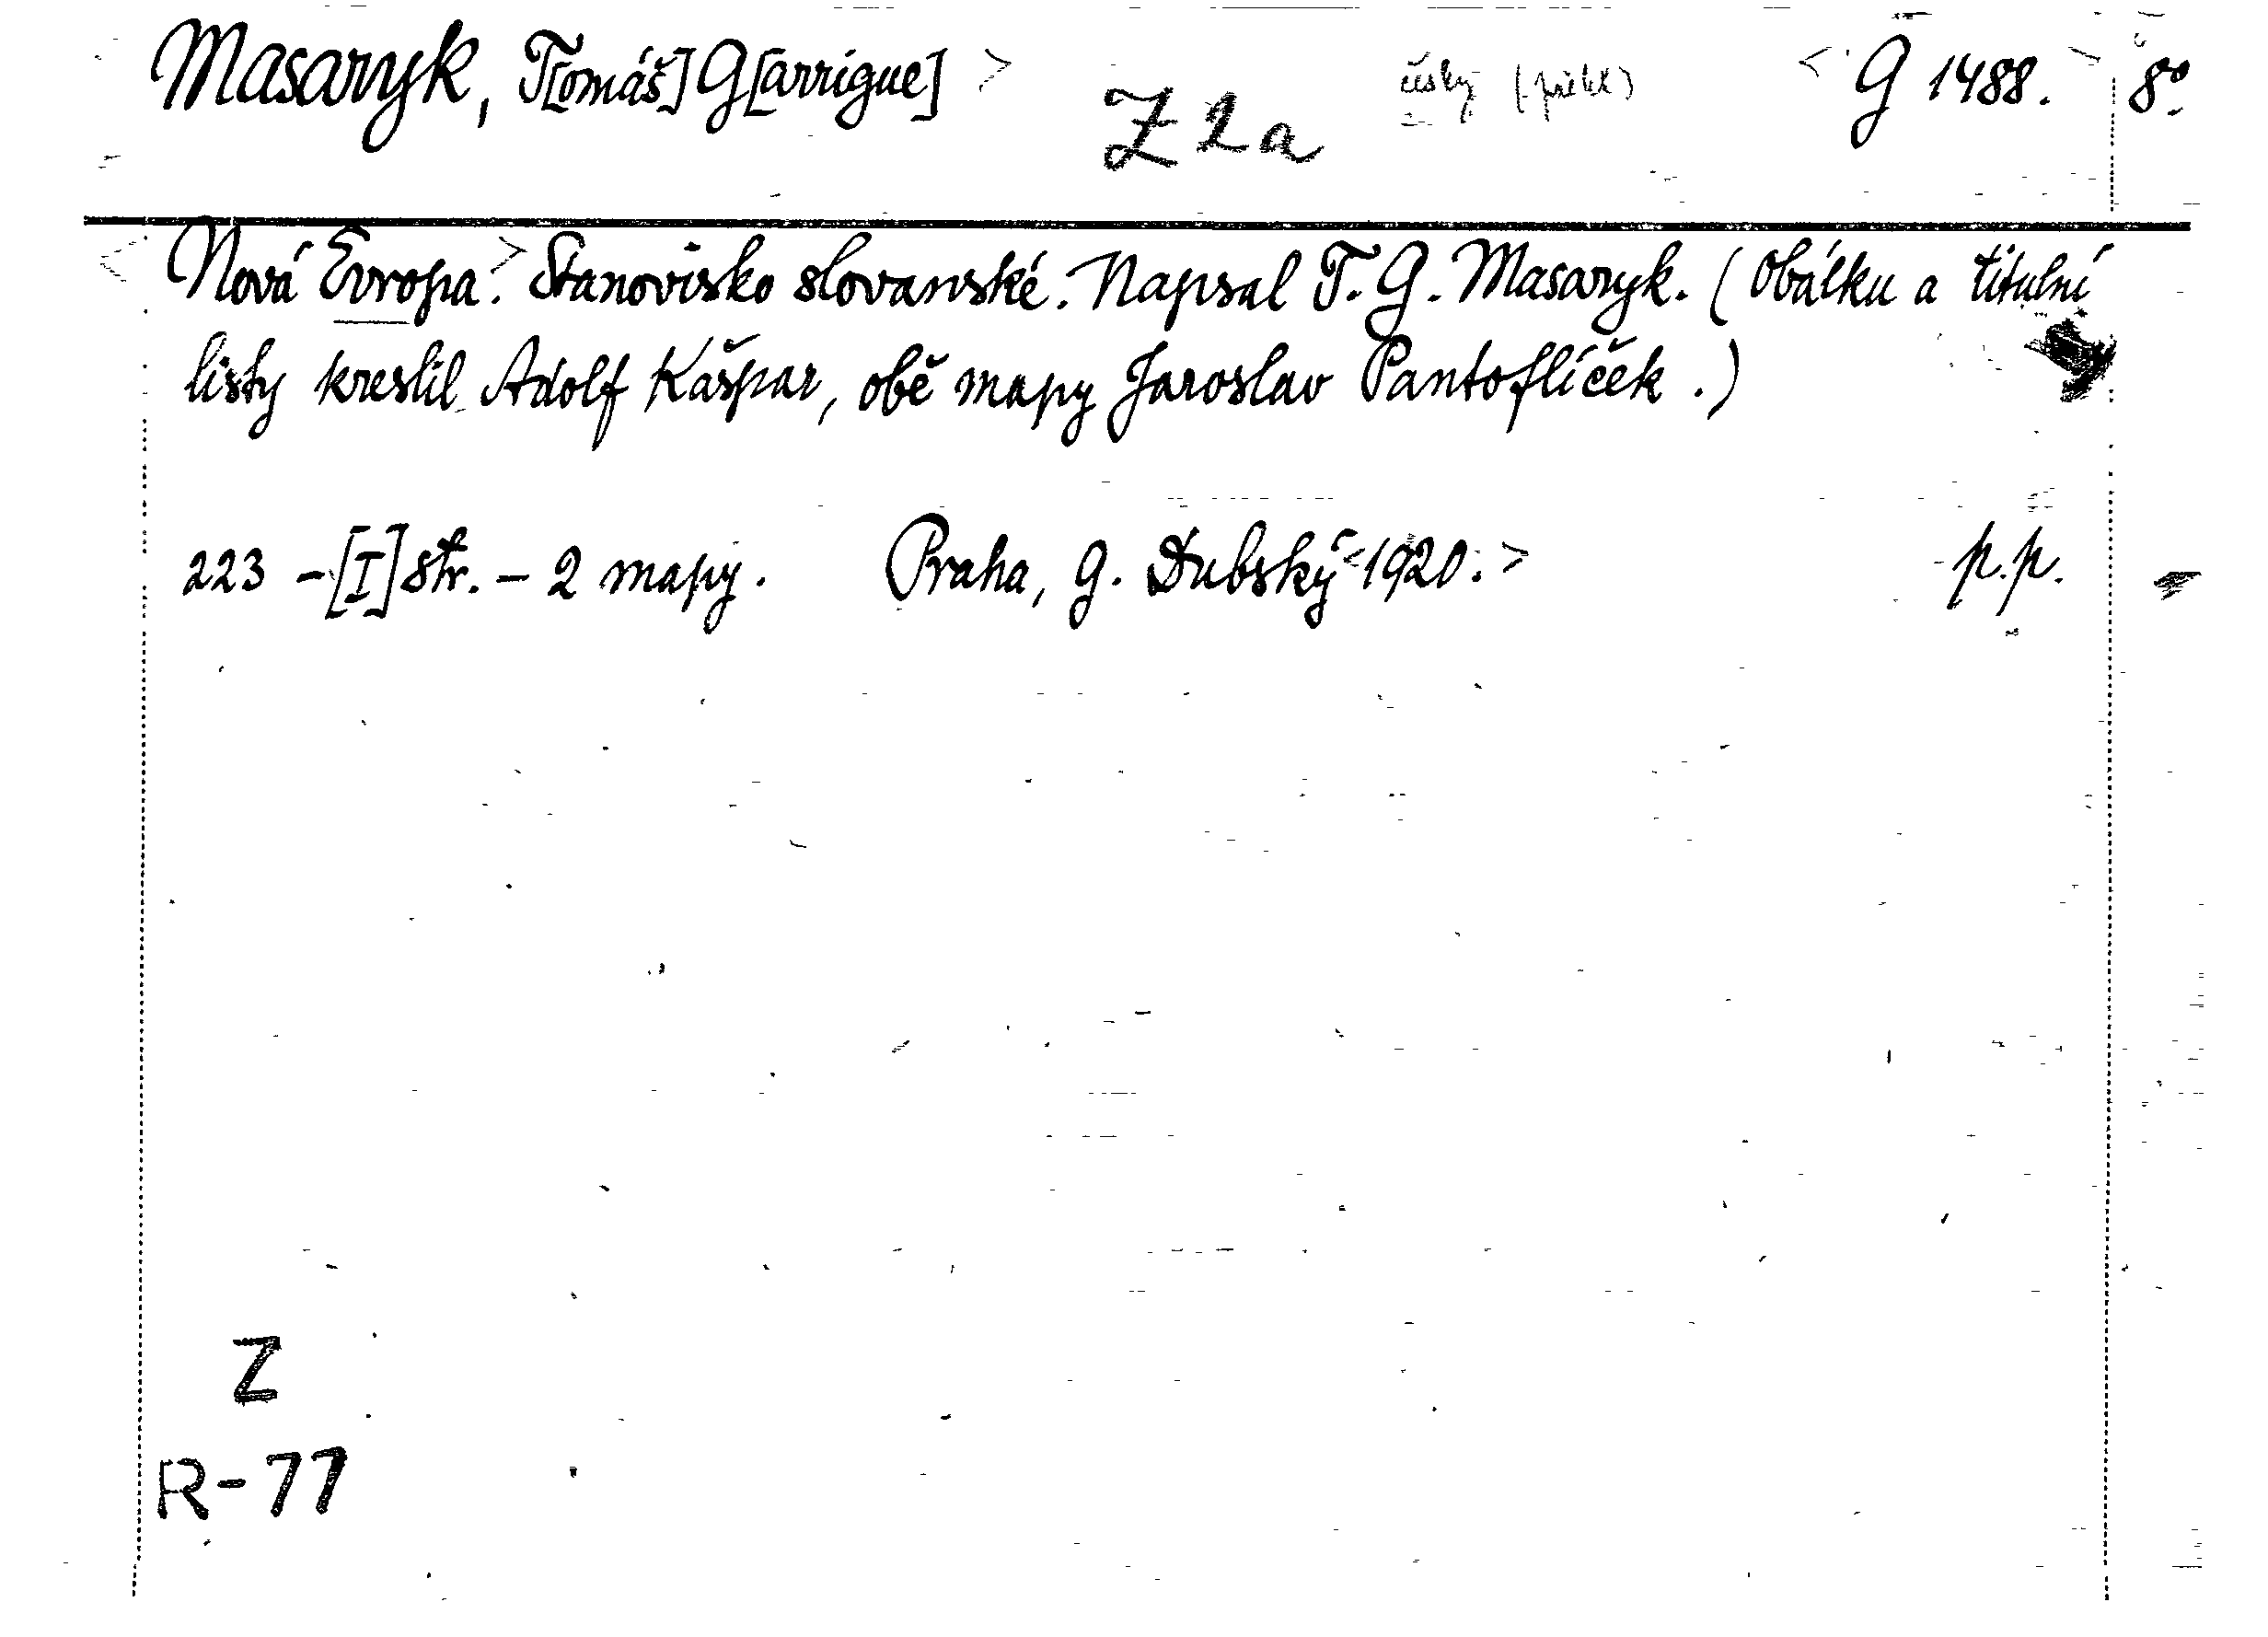 Masaryk, T[omáš] G[arrigue] > Z 2a česky < G 1488. 8°.
< Nová Evropa. > Stanovisko slovanské. Napsal T. G. Masaryk. (Obálku a titulní
listy kreslil Adolf Kašpar, obě mapy Jaroslav Pantoflíček.)
223 – [I] str. – 2 mapy. Praha, G. Dubský < 1920. > p.p.
Z
R-77